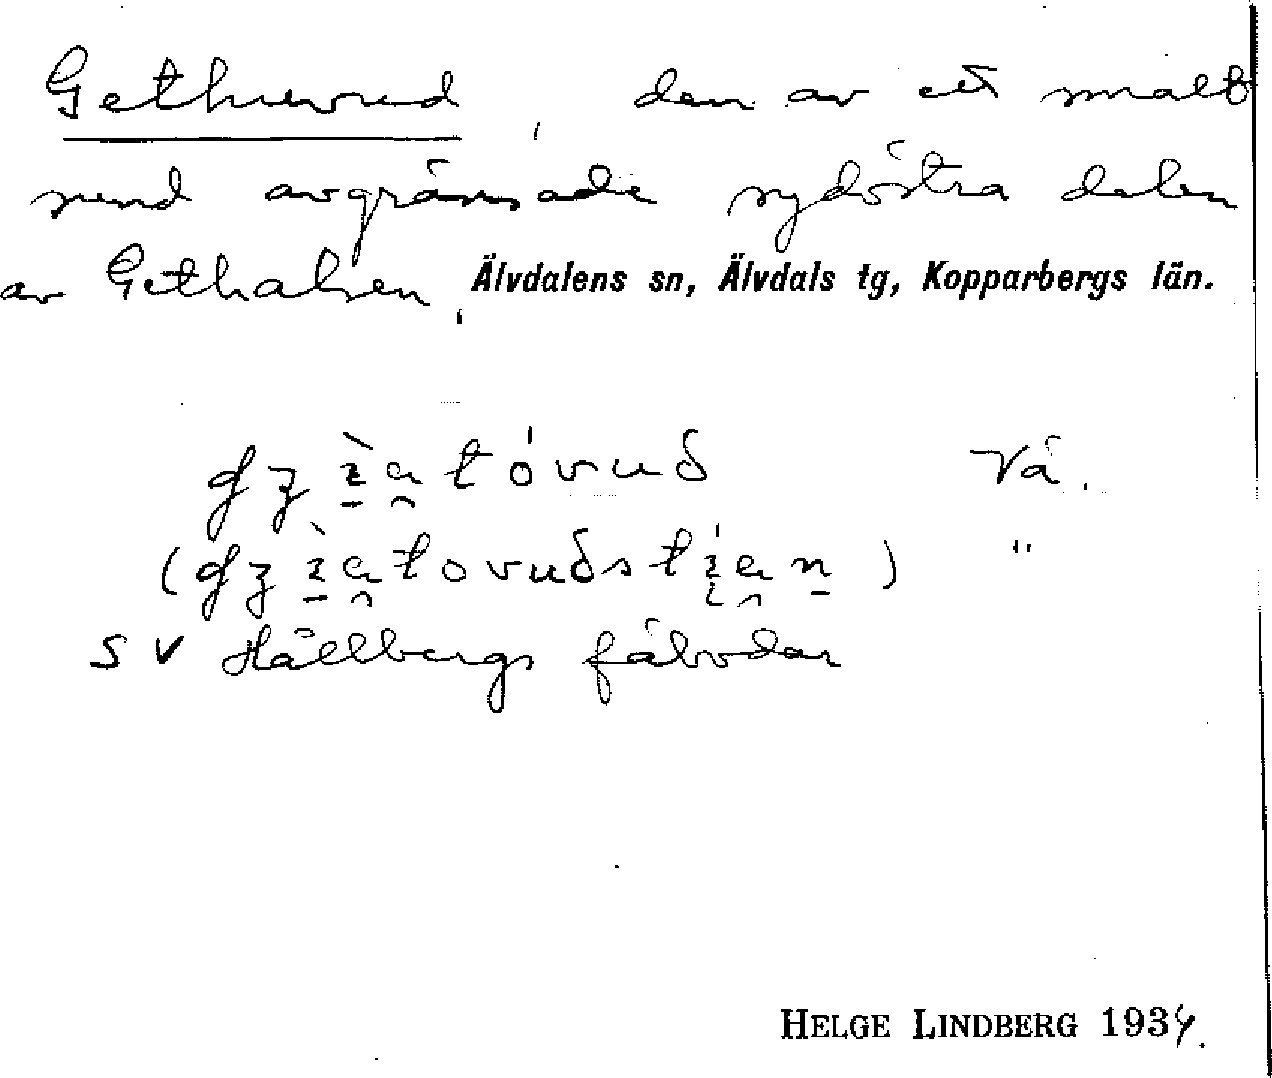 Gethuvud, den av ett smalt
sund avgränsade sydöstra delen
av Gethalsen, Älvdalens sn, Älvdals tg, Kopparbergs län.
Vå.
( ) "
S V Hällbergs fäbodar
HELGE LINDBERG 1934.